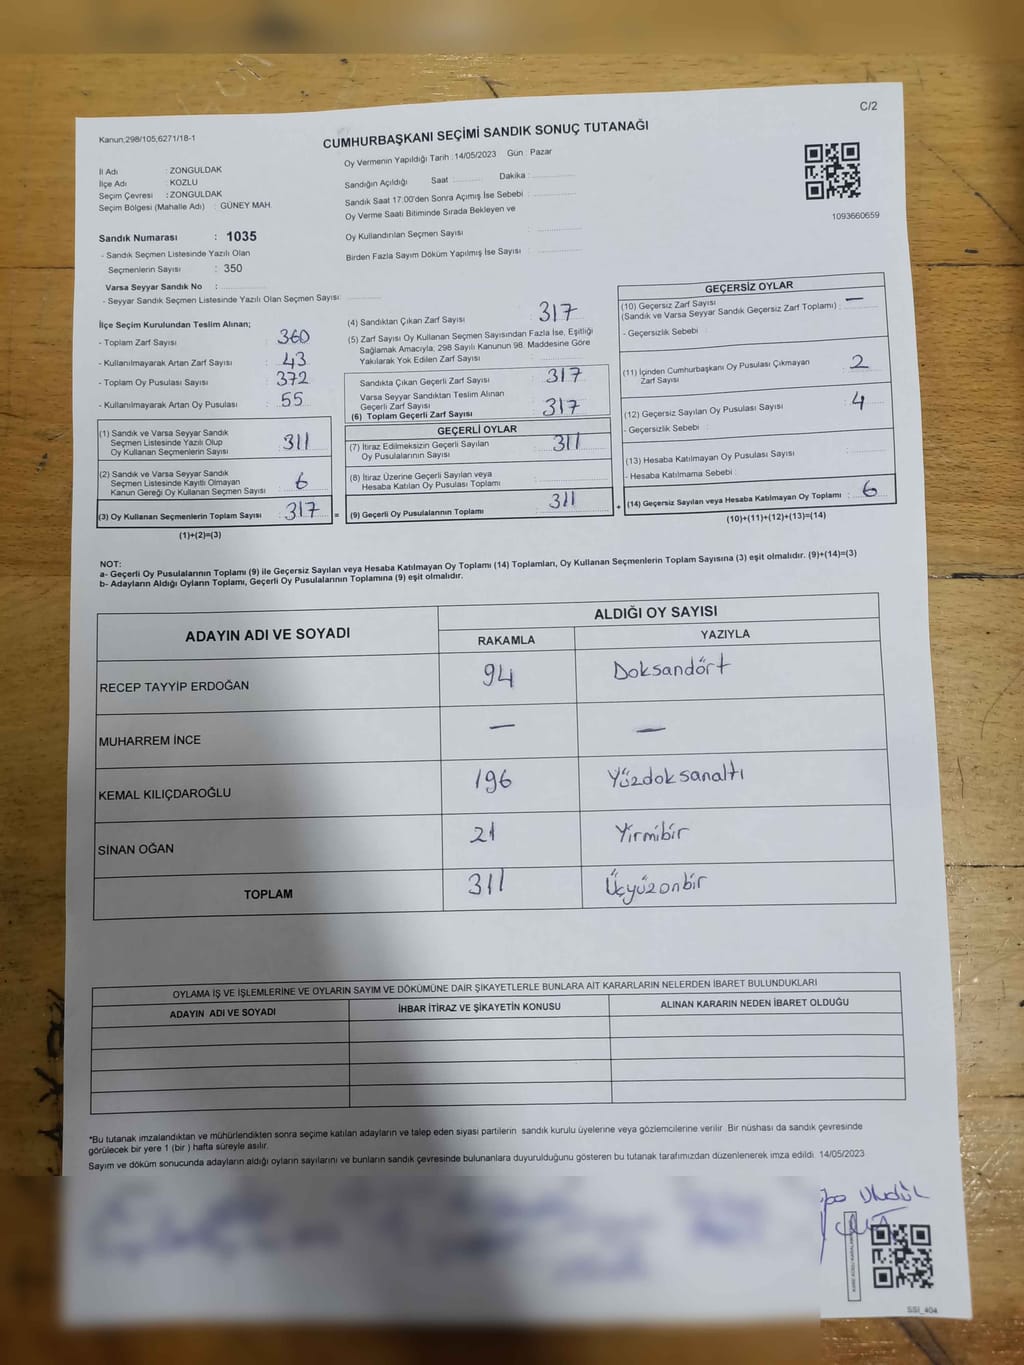 C/2
Kanun;298/105;6271/18-1
CUMHURBAŞKANI SEÇİMİ SANDIK SONUÇ TUTANAĞI
Oy Vermenin Yapıldığı Tarih :14/05/2023 Gün : Pazar
İl Adı : ZONGULDAK
İlçe Adı : KOZLU
Seçim Çevresi : ZONGULDAK
Seçim Bölgesi (Mahalle Adı) : GÜNEY MAH.
Sandığın Açıldığı Saat : Dakika :
Sandık Saat 17:00'den Sonra Açımış İse Sebebi :
Oy Verme Saati Bitiminde Sırada Bekleyen ve
Oy Kullandırılan Seçmen Sayısı :
Birden Fazla Sayım Döküm Yapılmış İse Sayısı :
1093660659
Sandık Numarası : 1035
- Sandık Seçmen Listesinde Yazılı Olan
Seçmenlerin Sayısı : 350
Varsa Seyyar Sandık No :
- Seyyar Sandık Seçmen Listesinde Yazılı Olan Seçmen Sayısı:
İlçe Seçim Kurulundan Teslim Alınan;
- Toplam Zarf Sayısı : 360
- Kullanılmayarak Artan Zarf Sayısı : 43
- Toplam Oy Pusulası Sayısı : 372
- Kullanılmayarak Artan Oy Pusulası : 55
(1) Sandık ve Varsa Seyyar Sandık
Seçmen Listesinde Yazılı Olup
Oy Kullanan Seçmenlerin Sayısı : 311
(2) Sandık ve Varsa Seyyar Sandık
Seçmen Listesinde Kayıtlı Olmayan
Kanun Gereği Oy Kullanan Seçmen Sayısı : 6
(3) Oy Kullanan Seçmenlerin Toplam Sayısı : 317
(1)+(2)=(3)
(4) Sandıktan Çıkan Zarf Sayısı : 317
(5) Zarf Sayısı Oy Kullanan Seçmen Sayısından Fazla İse, Eşitliği
Sağlamak Amacıyla; 298 Sayılı Kanunun 98. Maddesine Göre
Yakılarak Yok Edilen Zarf Sayısı :
Sandıkta Çıkan Geçerli Zarf Sayısı : 317
Varsa Seyyar Sandıktan Teslim Alınan
Geçerli Zarf Sayısı
(6) Toplam Geçerli Zarf Sayısı : 317
GEÇERLİ OYLAR
(7) İtiraz Edilmeksizin Geçerli Sayılan
Oy Pusulalarının Sayısı : 311
(8) İtiraz Üzerine Geçerli Sayılan veya
Hesaba Katılan Oy Pusulası Toplamı :
= (9) Geçerli Oy Pusulalarının Toplamı : 311
GEÇERSİZ OYLAR
(10) Geçersiz Zarf Sayısı
(Sandık ve Varsa Seyyar Sandık Geçersiz Zarf Toplamı) : —
- Geçersizlik Sebebi :
(11) İçinden Cumhurbaşkanı Oy Pusulası Çıkmayan
Zarf Sayısı : 2
(12) Geçersiz Sayılan Oy Pusulası Sayısı : 4
- Geçersizlik Sebebi :
(13) Hesaba Katılmayan Oy Pusulası Sayısı :
- Hesaba Katılmama Sebebi :
+ (14) Geçersiz Sayılan veya Hesaba Katılmayan Oy Toplamı : 6
(10)+(11)+(12)+(13)=(14)
NOT:
a- Geçerli Oy Pusulalarının Toplamı (9) ile Geçersiz Sayılan veya Hesaba Katılmayan Oy Toplamı (14) Toplamları, Oy Kullanan Seçmenlerin Toplam Sayısına (3) eşit olmalıdır. (9)+(14)=(3)
b- Adayların Aldığı Oyların Toplamı, Geçerli Oy Pusulalarının Toplamına (9) eşit olmalıdır.
ADAYIN ADI VE SOYADI
ALDIĞI OY SAYISI
RAKAMLA YAZIYLA
RECEP TAYYİP ERDOĞAN 94 Doksandört
MUHARREM İNCE — —
KEMAL KILIÇDAROĞLU 196 Yüzdoksanaltı
SİNAN OĞAN 21 Yirmibir
TOPLAM 311 Üçyüzonbir
OYLAMA İŞ VE İŞLEMLERİNE VE OYLARIN SAYIM VE DÖKÜMÜNE DAİR ŞİKAYETLERLE BUNLARA AİT KARARLARIN NELERDEN İBARET BULUNDUKLARI
ADAYIN ADI VE SOYADI İHBAR İTİRAZ VE ŞİKAYETİN KONUSU ALINAN KARARIN NEDEN İBARET OLDUĞU
*Bu tutanak imzalandıktan ve mühürlendikten sonra seçime katılan adayların ve talep eden siyasi partilerin sandık kurulu üyelerine veya gözlemcilerine verilir. Bir nüshası da sandık çevresinde
görülecek bir yere 1 (bir ) hafta süreyle asılır.
Sayım ve döküm sonucunda adayların aldığı oyların sayılarını ve bunların sandık çevresinde bulunanlara duyurulduğunu gösteren bu tutanak tarafımızdan düzenlenerek imza edildi. 14/05/2023
SSI_404